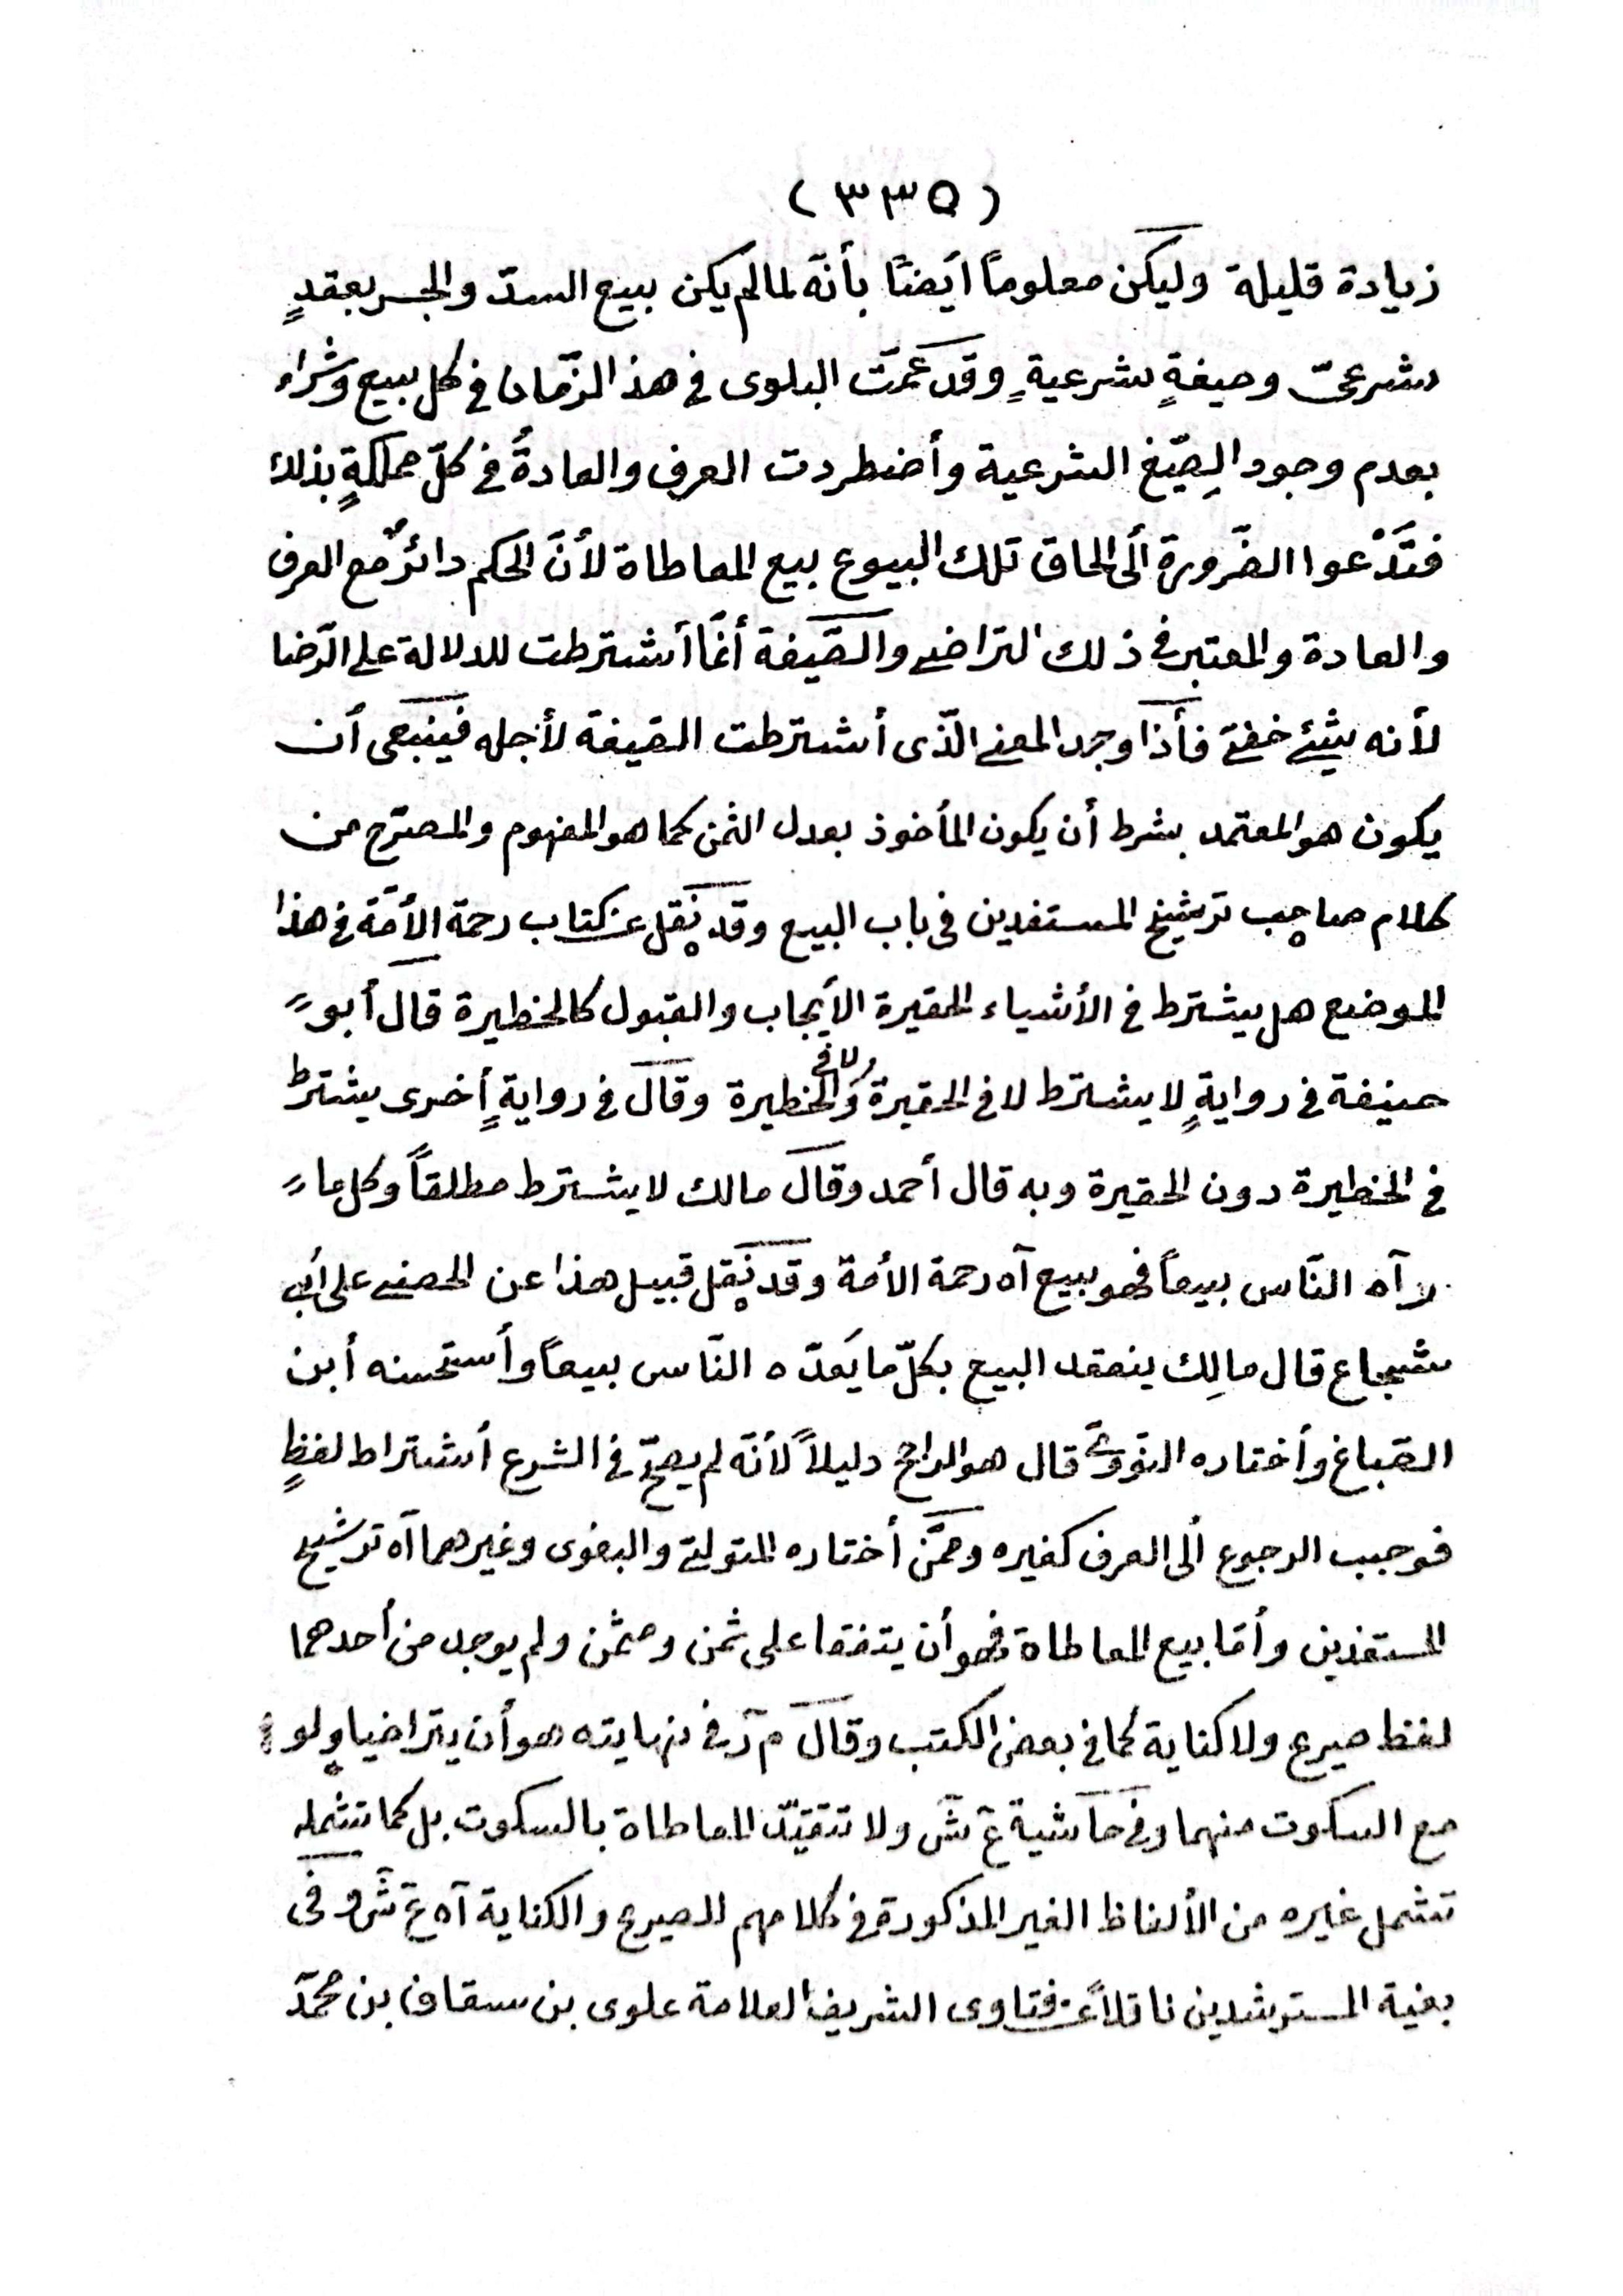 (٣٣٥)
زيادة قليلة وليكن معلوماً أيضاً بأنّه لمالم يكن بيع السدّ والجسر بعقدٍ
شرعيّ وصيغةٍ شرعيةٍ وقد عمّت البلوى فى هذ الزّمان فى كل بيع وشراء
بعدم وجود الصِيَغ الشرعية وأضطردت العرف والعادةُ فى كلّ مملكةٍ بذلك
فتَدْعوا الضّرورة ألى الحاق تلك البيوع بيع المعاطاة لأنّ الحكم دائرٌ مع العرف
والعادة والمعتبر فى ذلك التراضى والصّيغة أنّما أشترطت للدلالة على الرّضا
لأنه شيئ خفىّ فأذا وجد المعنى الّذى أشترطت الصّيغة لأجله فينبغى أن
يكون هو المعتمد بشرط أن يكون المأخوذ بعدل الثمن كما هو المفهوم والمصرّح من
كلام صاحب ترشيح المستفدين فى باب البيع وقد نقل عن كتاب رحمة الأمّة فى هذا
الموضع هل يشترط فى الأشياء الحقيرة الأيجاب والقبول كالخطيرة قال أبو
حنيفة فى روايةٍ لا يشترط لا فى الحقيرة ولا فى الخطيرة وقال فى روايةٍ أخرى يشترط
فى الخطيرة دون الحقيرة وبه قال أحمد وقال مالك لا يشترط مطلقاً وكل ما
رآه النّاس بيعاً فهو بيع آه رحمة الأمة وقد نقل قبيل هذا عن الحصنى على أبى
شجاع قال مالِك ينعقد البيع بكلّ ما يَعدّه النّاس بيعاً وأستحسنه أبن
الصّباغ وأختاره النّووىّ قال هو الراجح دليلاً لأنّه لم يصحّ فى الشرع أشتراط لفظٍ
فوجب الرجوع ألى العرف كغيره وممّن أختاره المتولىّ والبغوى وغيرهما آه ترشيح
المستفدين وأمّا بيع المعاطاة فهو أن يتفقا على ثمن ومثمن ولم يوجد من أحدهما
لفظ صريح ولا كناية كما فى بعض الكتب وقال م ر فى نهايته هو أن يتراضيا ولو
مع السكوت منهما وفى حاشية ع ش ولا تتقيّد المعاطاة بالسكوت بل كما تشمله
تشمل غيره من الألفاظ الغير المذكورة فى كلامهم للصريح والكناية آه ع ش وفى
بغية المسترشدين ناقلاً عن فتاوى الشريف العلامة علوى بن سقاف بن محمّد